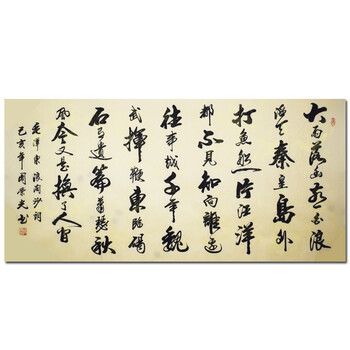 大雨落幽燕白浪
滔天秦皇島外
打魚船一片汪洋
都不見知向誰邊
往事越千年魏
武揮鞭東臨碣
石有遺篇蕭瑟秋
風今又是換了人间
毛澤東浪淘沙詞
己亥年光書